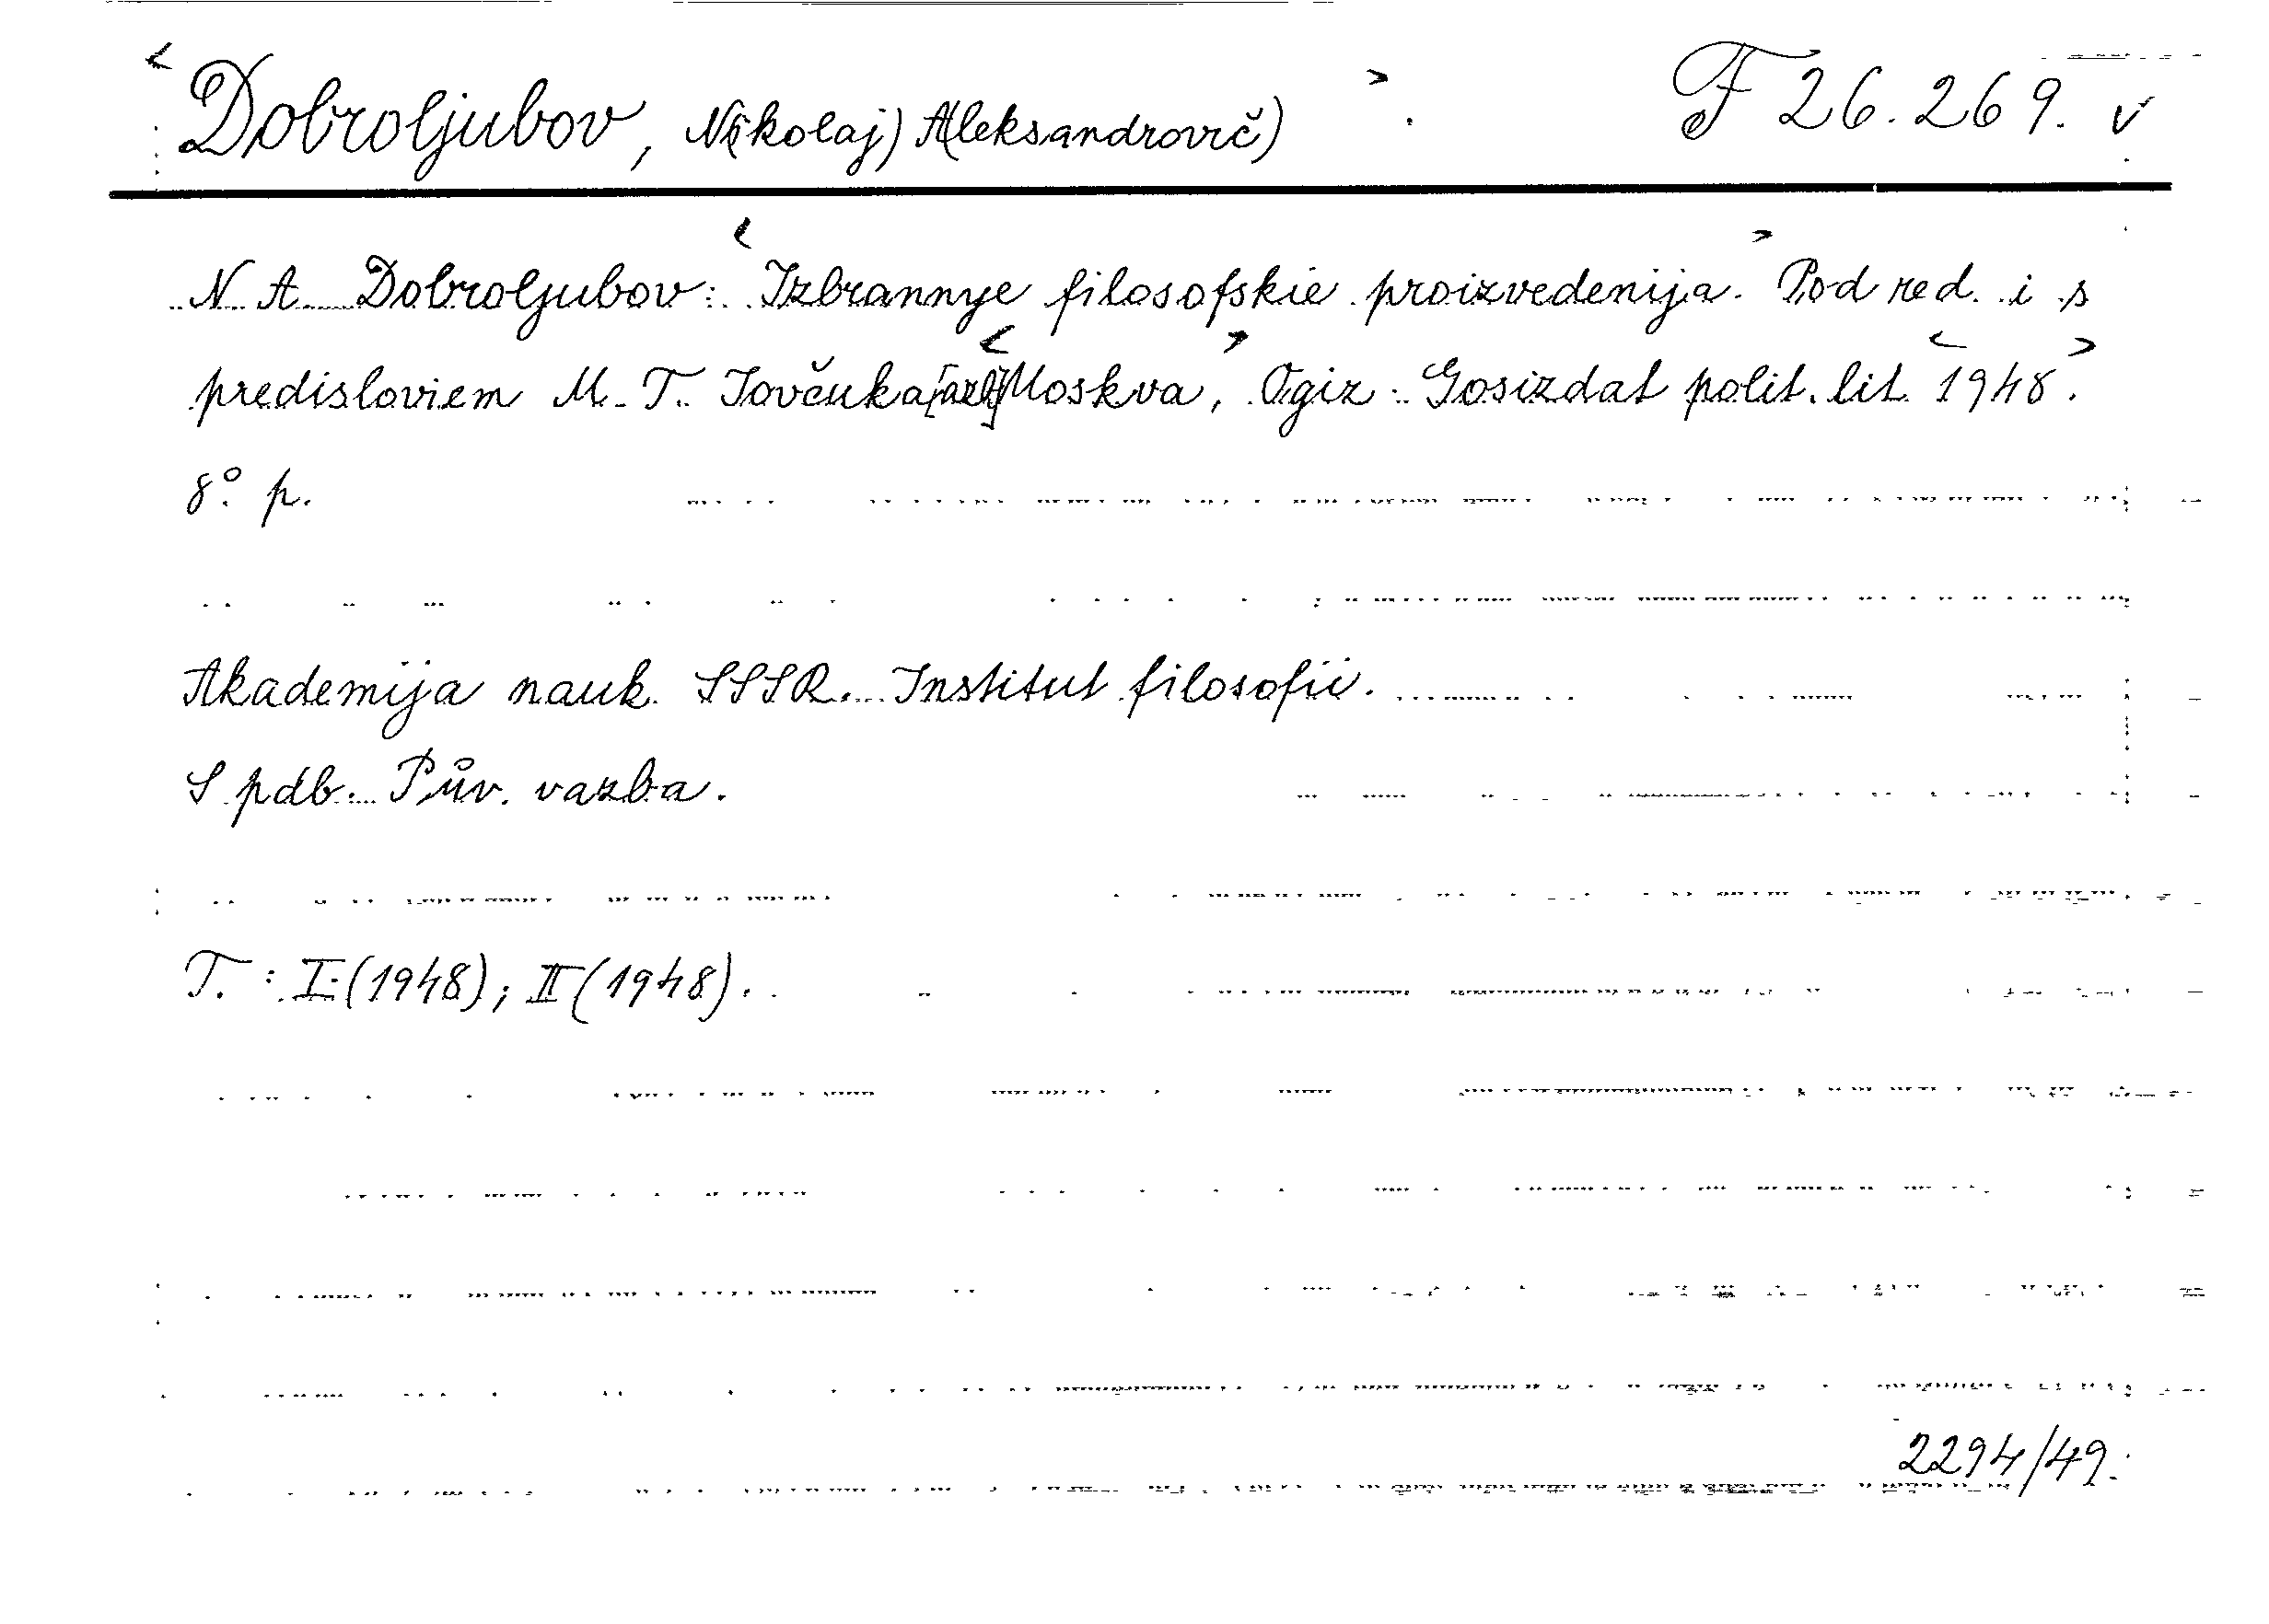 <Dobroljubov, N(ikolaj) A(leksandrovič)>. F 26.269. v
N. A. Dobroljubov: <Izbrannye filosofskie proizvedenija.> Pod red. i s
predisloviem M. T. Iovčuka <Moskva>, Ogiz: Gosizdat polit. lit. <1948>.
8°. p.
Akademija nauk SSSR. Institut filosofii.
S pdb. Pův. vazba.
T.: I (1948); II (1948).
2294/49.